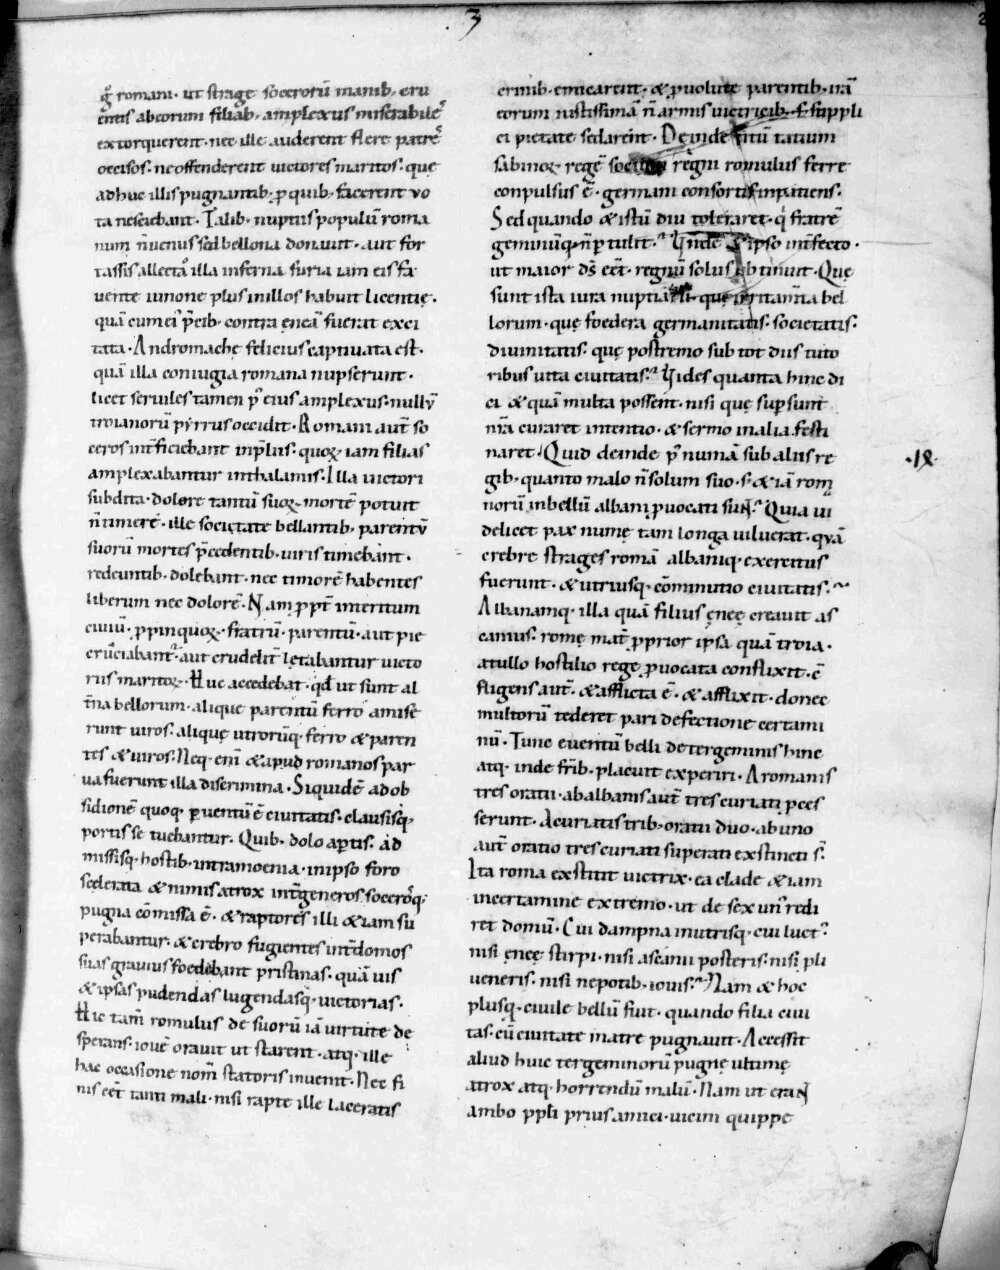 3
g̃ romani· ut strage socerorũ manib; cru
entis ab eorum filiab; amplexus miserabile᷒
extorquerent· nec ille auderent flere patrẽ
occisos· ne offenderent victores maritos· quę
adhuc illis pugnantib; ꝓ quib; facerent vo
ta nesciebant· Talib; nuptiis populũ roma
num ñ uenus sed bellona donauit· aut for
tassis allecto illa inferna furia iam eis fa
uente iunone plus in illos habuit licentię·
quã cum ei᷒ p̃cib; contra ęneã fuerat exci
tata· Andromache felicius captiuata est·
quã illa coniugia romana nupserunt·
licet seruiles tamen p᷒ eius amplexus· nullũ
troianorũ pyrrus occidit· Romani aut̃ so
ceros int̃ficiebant in p̃liis· quoꝝ iam filias
amplexabantur in thalamis· Illa uictori
subdita· dolore tantũ suoꝝ· mortẽ potuit
ñ timere· ille sociętate bellantib; parentũ
suorũ mortes p̃cedentib; uiris timebant·
redeuntib; dolebant· nec timorẽ habentes
liberum nec dolorẽ· Nam ꝓpt̃ interitum
ciuiũ· ꝓpinquoꝝ· fratrũ· parentũ· aut pie
cruciabant᷒· aut crudelit̃ lętabantur victo
riis maritoꝝ· Huc accedebat· qđ ut sunt al
t̃na bellorum· alique parentũ ferro amise
runt uiros· aliquę utrorũq; ferro & paren
tes & uiros· Neq; eni᷒ & apud romanos par
ua fuerunt illa discrimina· Siquidẽ ad ob
sidionẽ quoq; ꝑuentũ ẽ ciuitatis· clausisq;
portis se tuebantur· Quib; dolo aꝑtis· ad
missisq; hostib; intra moenia· in ipso foro
scelerata & nimis atrox int̃ generos socerosq;
pugna cõmissa ẽ· & raptores illi & iam su
perabantur· & crebro fugientes int̃ domos
suas grauius foedebant pristinas· quã uis
& ipsas pudendas lugendasq; uictorias·
Hic tam̃ romulus de suorũ iã uirtute de
sperans· iouẽ orauit ut starent· atq; ille
hac occasione nom̃ statoris inuenit· Nec fi
nis eẽt tanti mali· nisi raptę ille laceratis
crinib; emicarent· & ꝓuolute parentib; irã
eorum iustissimã ñ armis uictricib; s; suppli
ci pietate sedarent· Deinde titũ tatium
sabinoꝝ regẽ sociũ regni romulus ferre
conpulsus ẽ· germani consortis inpatiens·
Sed quando & istũ diu toleraret· q᷒ fratrẽ
geminũq; ñ ꝑtulit· Vnde & ipso int̃fecto·
ut maior ds̃ eẽt· regnũ solus obtinuit· Quę
sunt ista iura nuptiarũ· quę irritam̃ta bel
lorum· quę foedera germanitatis· societatis·
diuinitatis· quę postremo sub tot diis tuto
ribus uita ciuitatis· Vides quanta hinc di
ci & quã multa possent· nisi quę suꝑsunt
nr̃a curaret intentio· & sermo in alia festi
naret· Quid deinde p᷒ numã sub aliis re
·IX·
gib; quanto malo ñ solum suo· s; & iã rom
norũ in bellũ albani ꝓuocati sunt· Quia vi
delicet pax numę tam longa uiluerat· quã
crebre strages romã albaniq; exercitus
fuerunt· & utriusq; cõminutio ciuitatis·
Albanamq; illa quã filius ęneę creauit as
canius· romę mat̃ ꝓprior ipsa quã troia·
a tullo hostilio rege ꝓuocata conflixit· cõ
fligens aut̃· & afflicta ẽ· & afflixit· donec
multorũ tederet pari defectione certami
nũ· Tunc euentũ belli de tergeminis hinc
atq; inde fr̃ib; placuit experiri· A romanis
tres oratii· ab albanis aut̃ tres curiati ꝓces
serunt· A curiatis trib; oratii duo· ab uno
aut̃ oratio tres curiati superati exstincti s̃·
Ita roma exstitit victrix· ea clade & iam
in certamine extremo· ut de sex un᷒ redi
ret domũ· Cui dampna in utrisq; cui luct᷒·
nisi ęneę stirpi· nisi ascanii posteris· nisi pli
ueneris· nisi nepotib; iouis· Nam & hoc
plusq; ciuile bellũ fuit· quando filia ciui
tas· cũ ciuitate matre pugnauit· Accessit
aliud huic tergeminorũ pugnę ultimę
atrox atq; horrendũ malũ· Nam ut erant
ambo ppli prius amici· uicini quippe